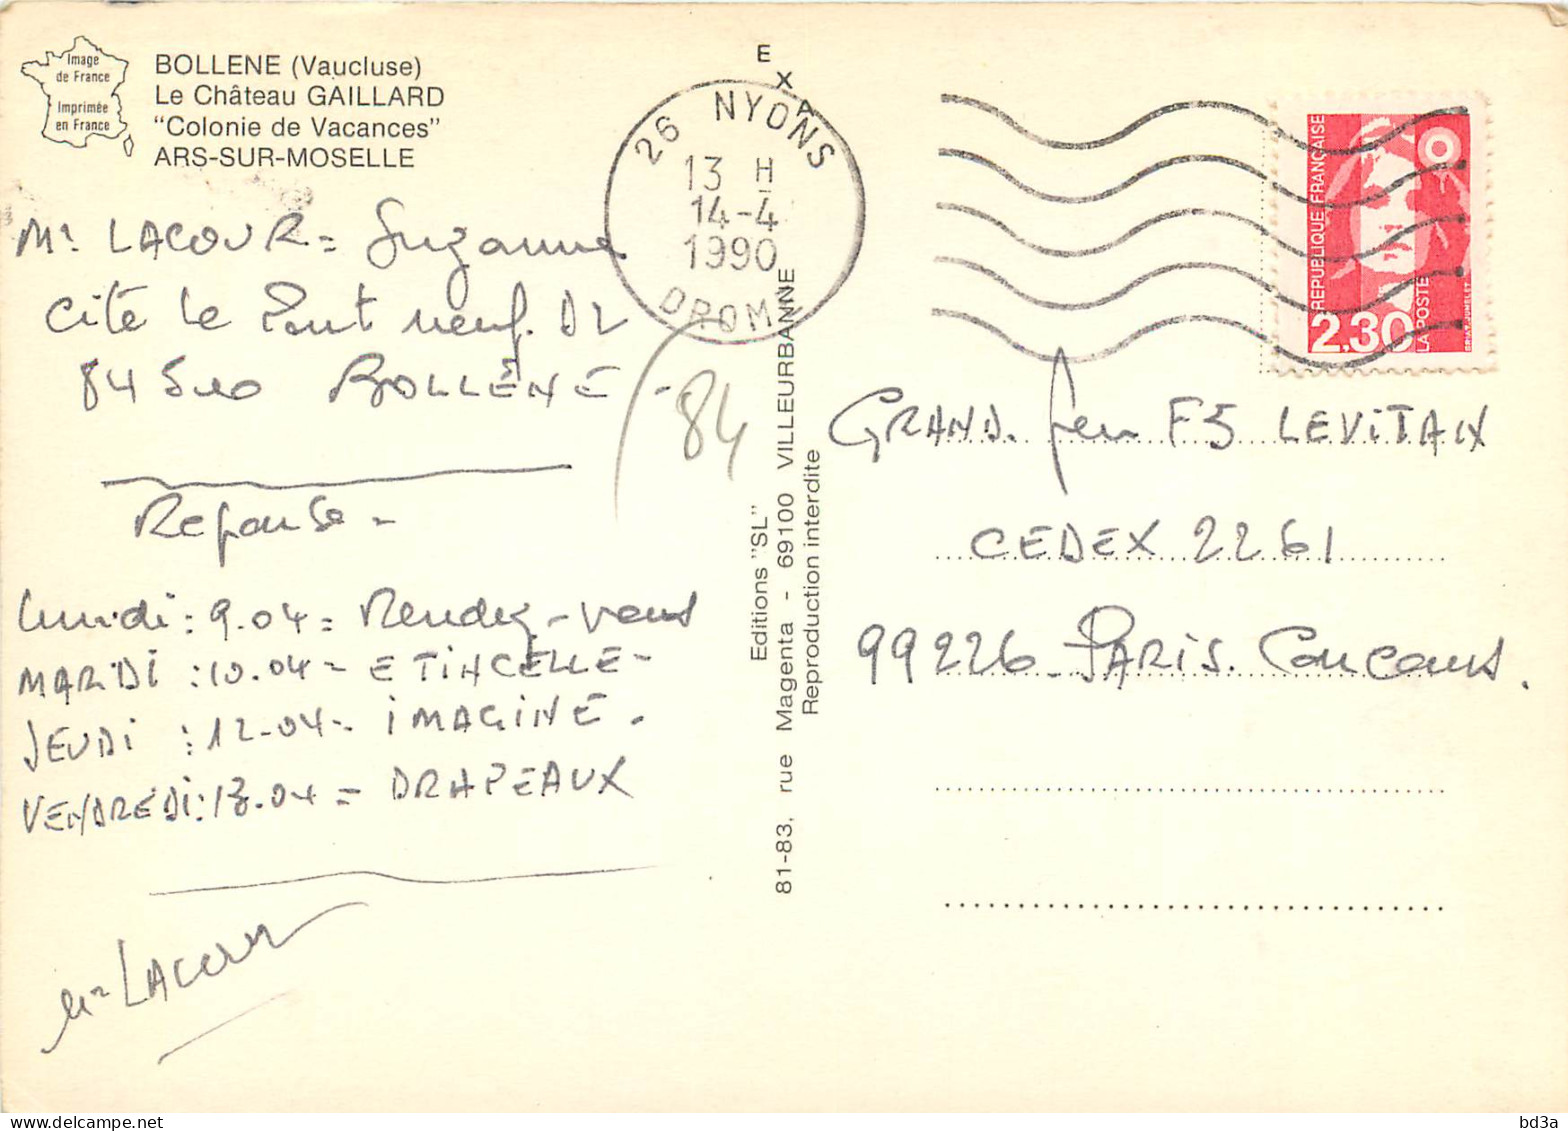 Image
de France
Imprimée
en France
BOLLENE (Vaucluse)
Le Château GAILLARD
"Colonie de Vacances"
ARS-SUR-MOSELLE
Me LACOUR = Suzanne
Cité le Pont neuf. D2
84500 BOLLÈNE -
84
Reponse -
Lundi : 9.04 = Rendez-vous
MARDI : 10.04 - ETINCELLE -
JEUDI : 12-04 - IMAGINE.
VENDREDI : 13.04 = DRAPEAUX
Me LACOUR
EXA
26 NYONS
13 H
14-4
1990
DROME
Editions "SL"
81-83, rue Magenta - 69100 VILLEURBANNE
Reproduction interdite
REPUBLIQUE FRANÇAISE
2,30
LA POSTE
GRAND. Jeu F5 LEVITAN
CEDEX 2261
99226 - PARIS. Concours.
delcampe.net
bd3a